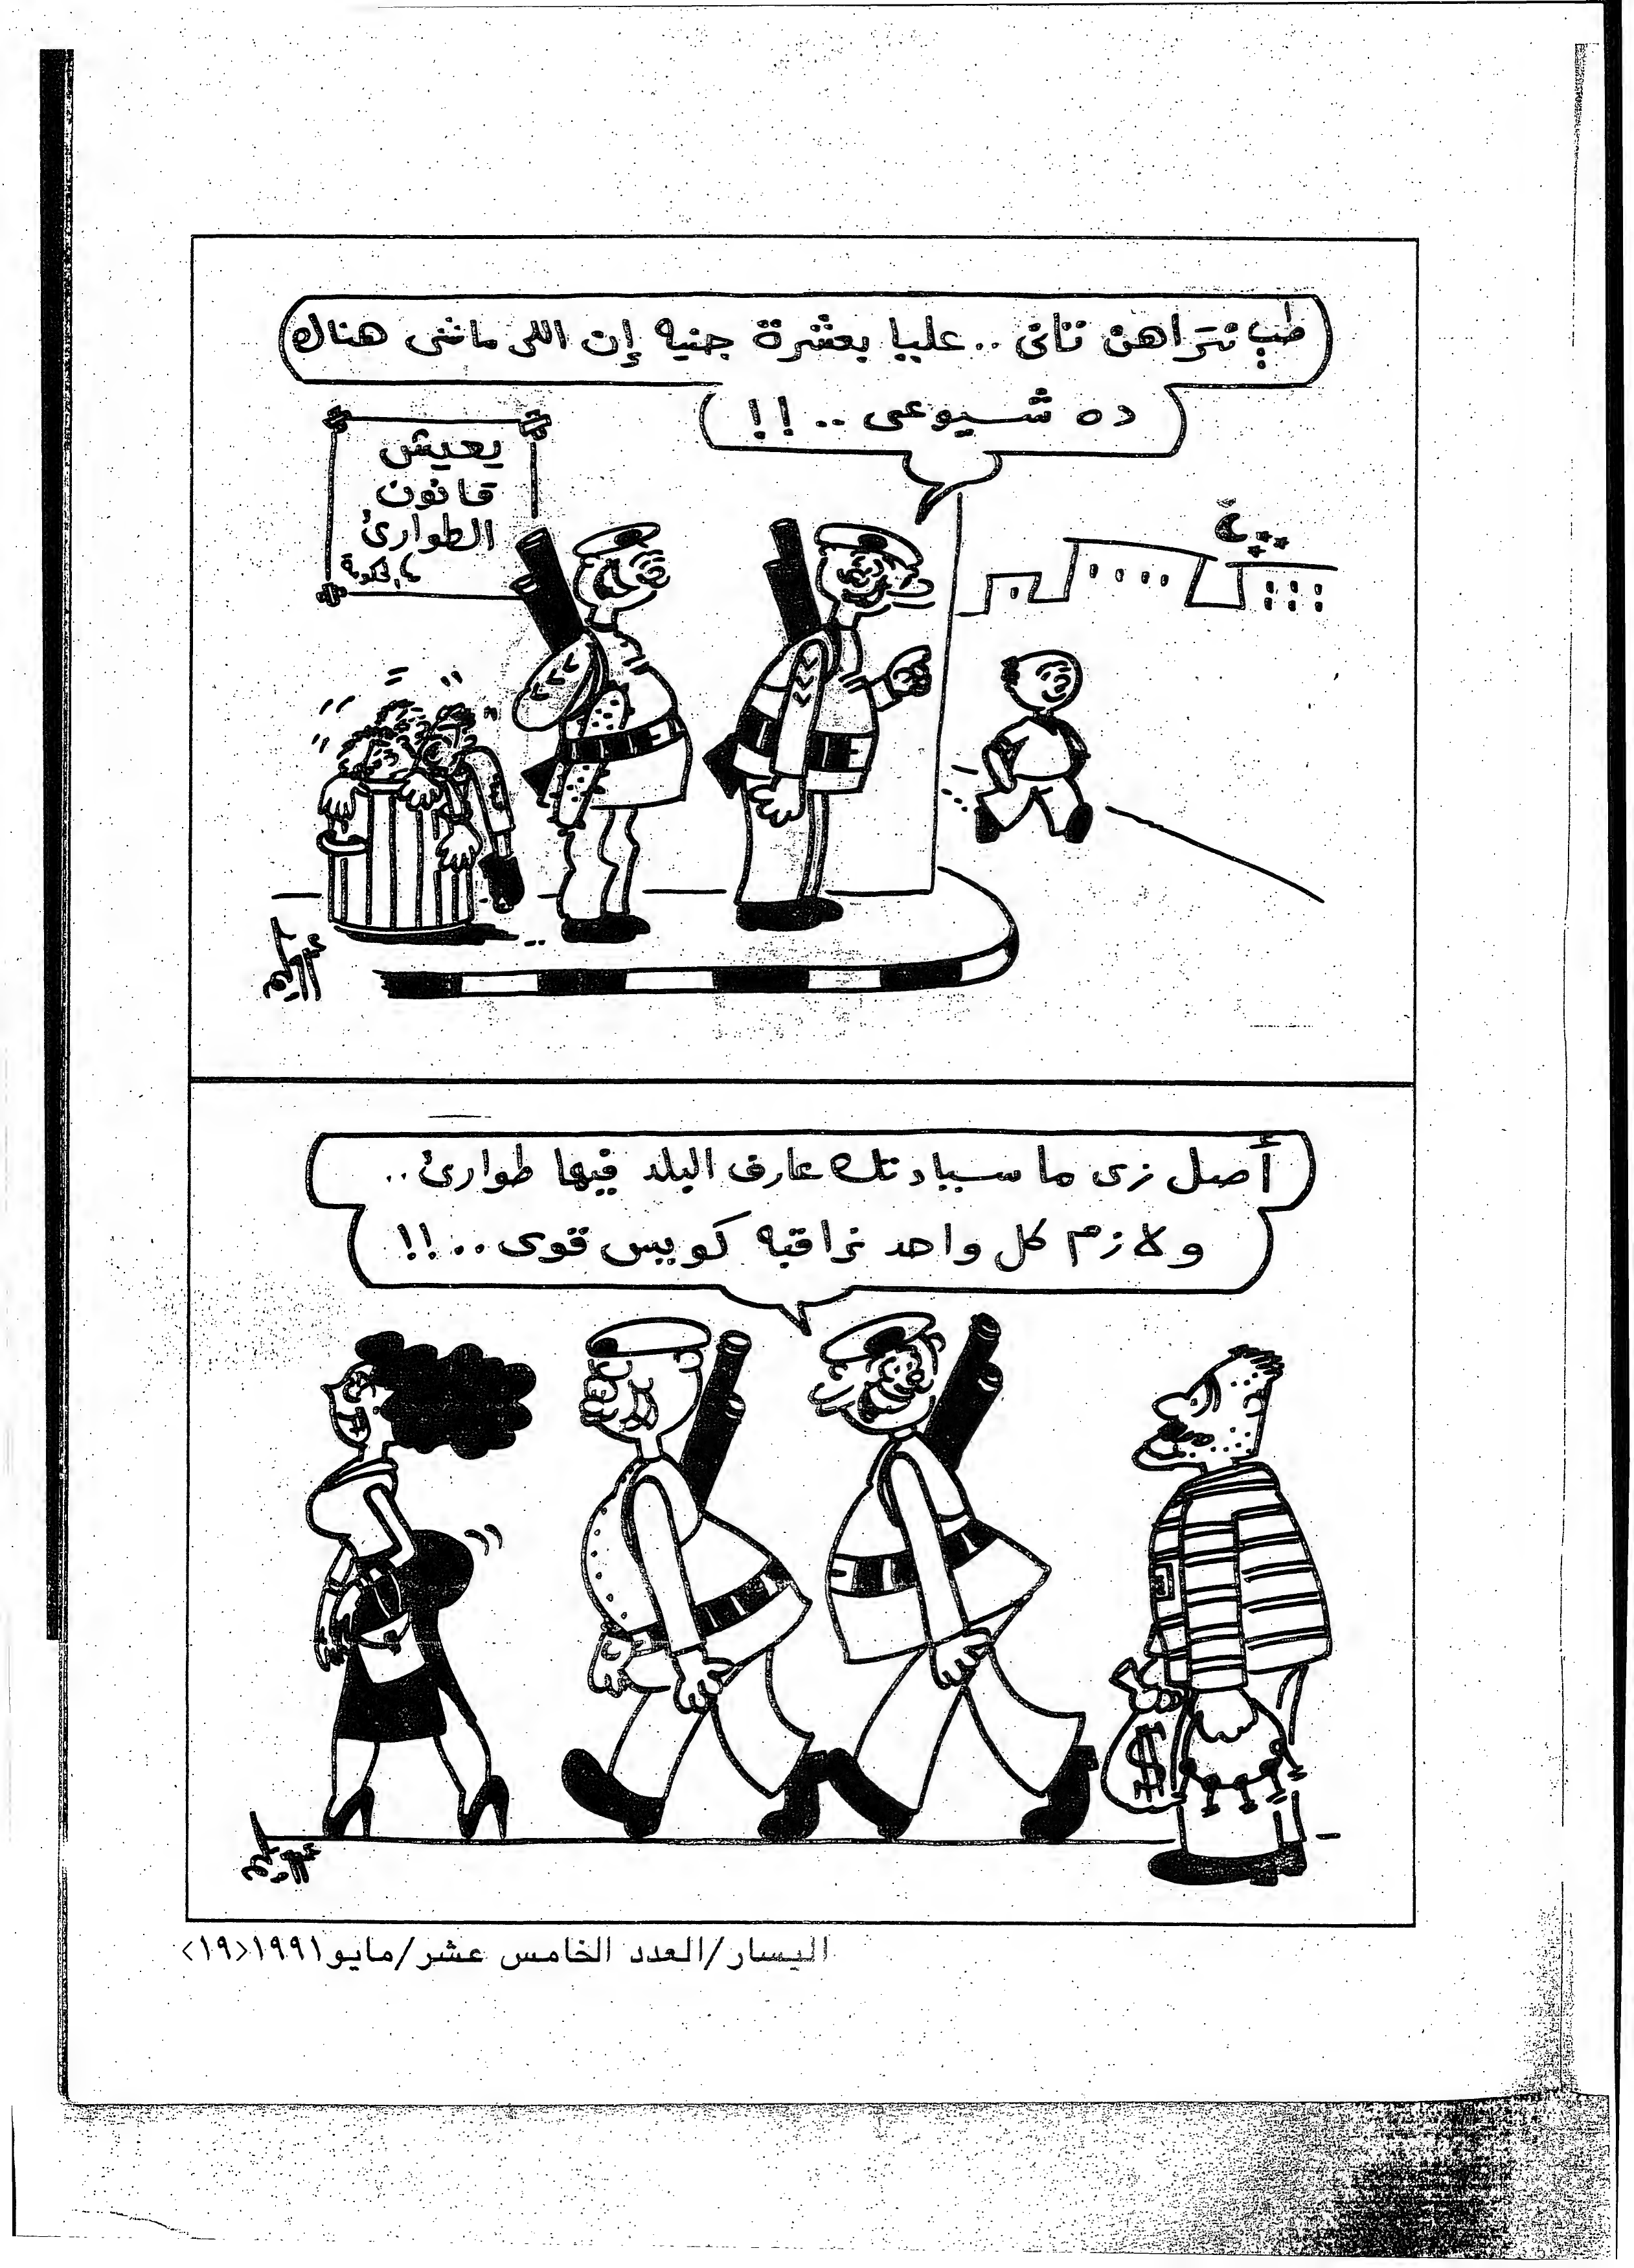 طب نتراهن تانى .. عليا بعشرة جنيه إن اللى ماشى هناك
ده شيوعى .. !!
يعيش
قانون
الطوارئ
أصل زى ما سيادتك عارف البلد فيها طوارئ ..
ولازم كل واحد نراقبه كويس قوى .. !!
اليسار/العدد الخامس عشر/مايو ١٩٩١<١٩>